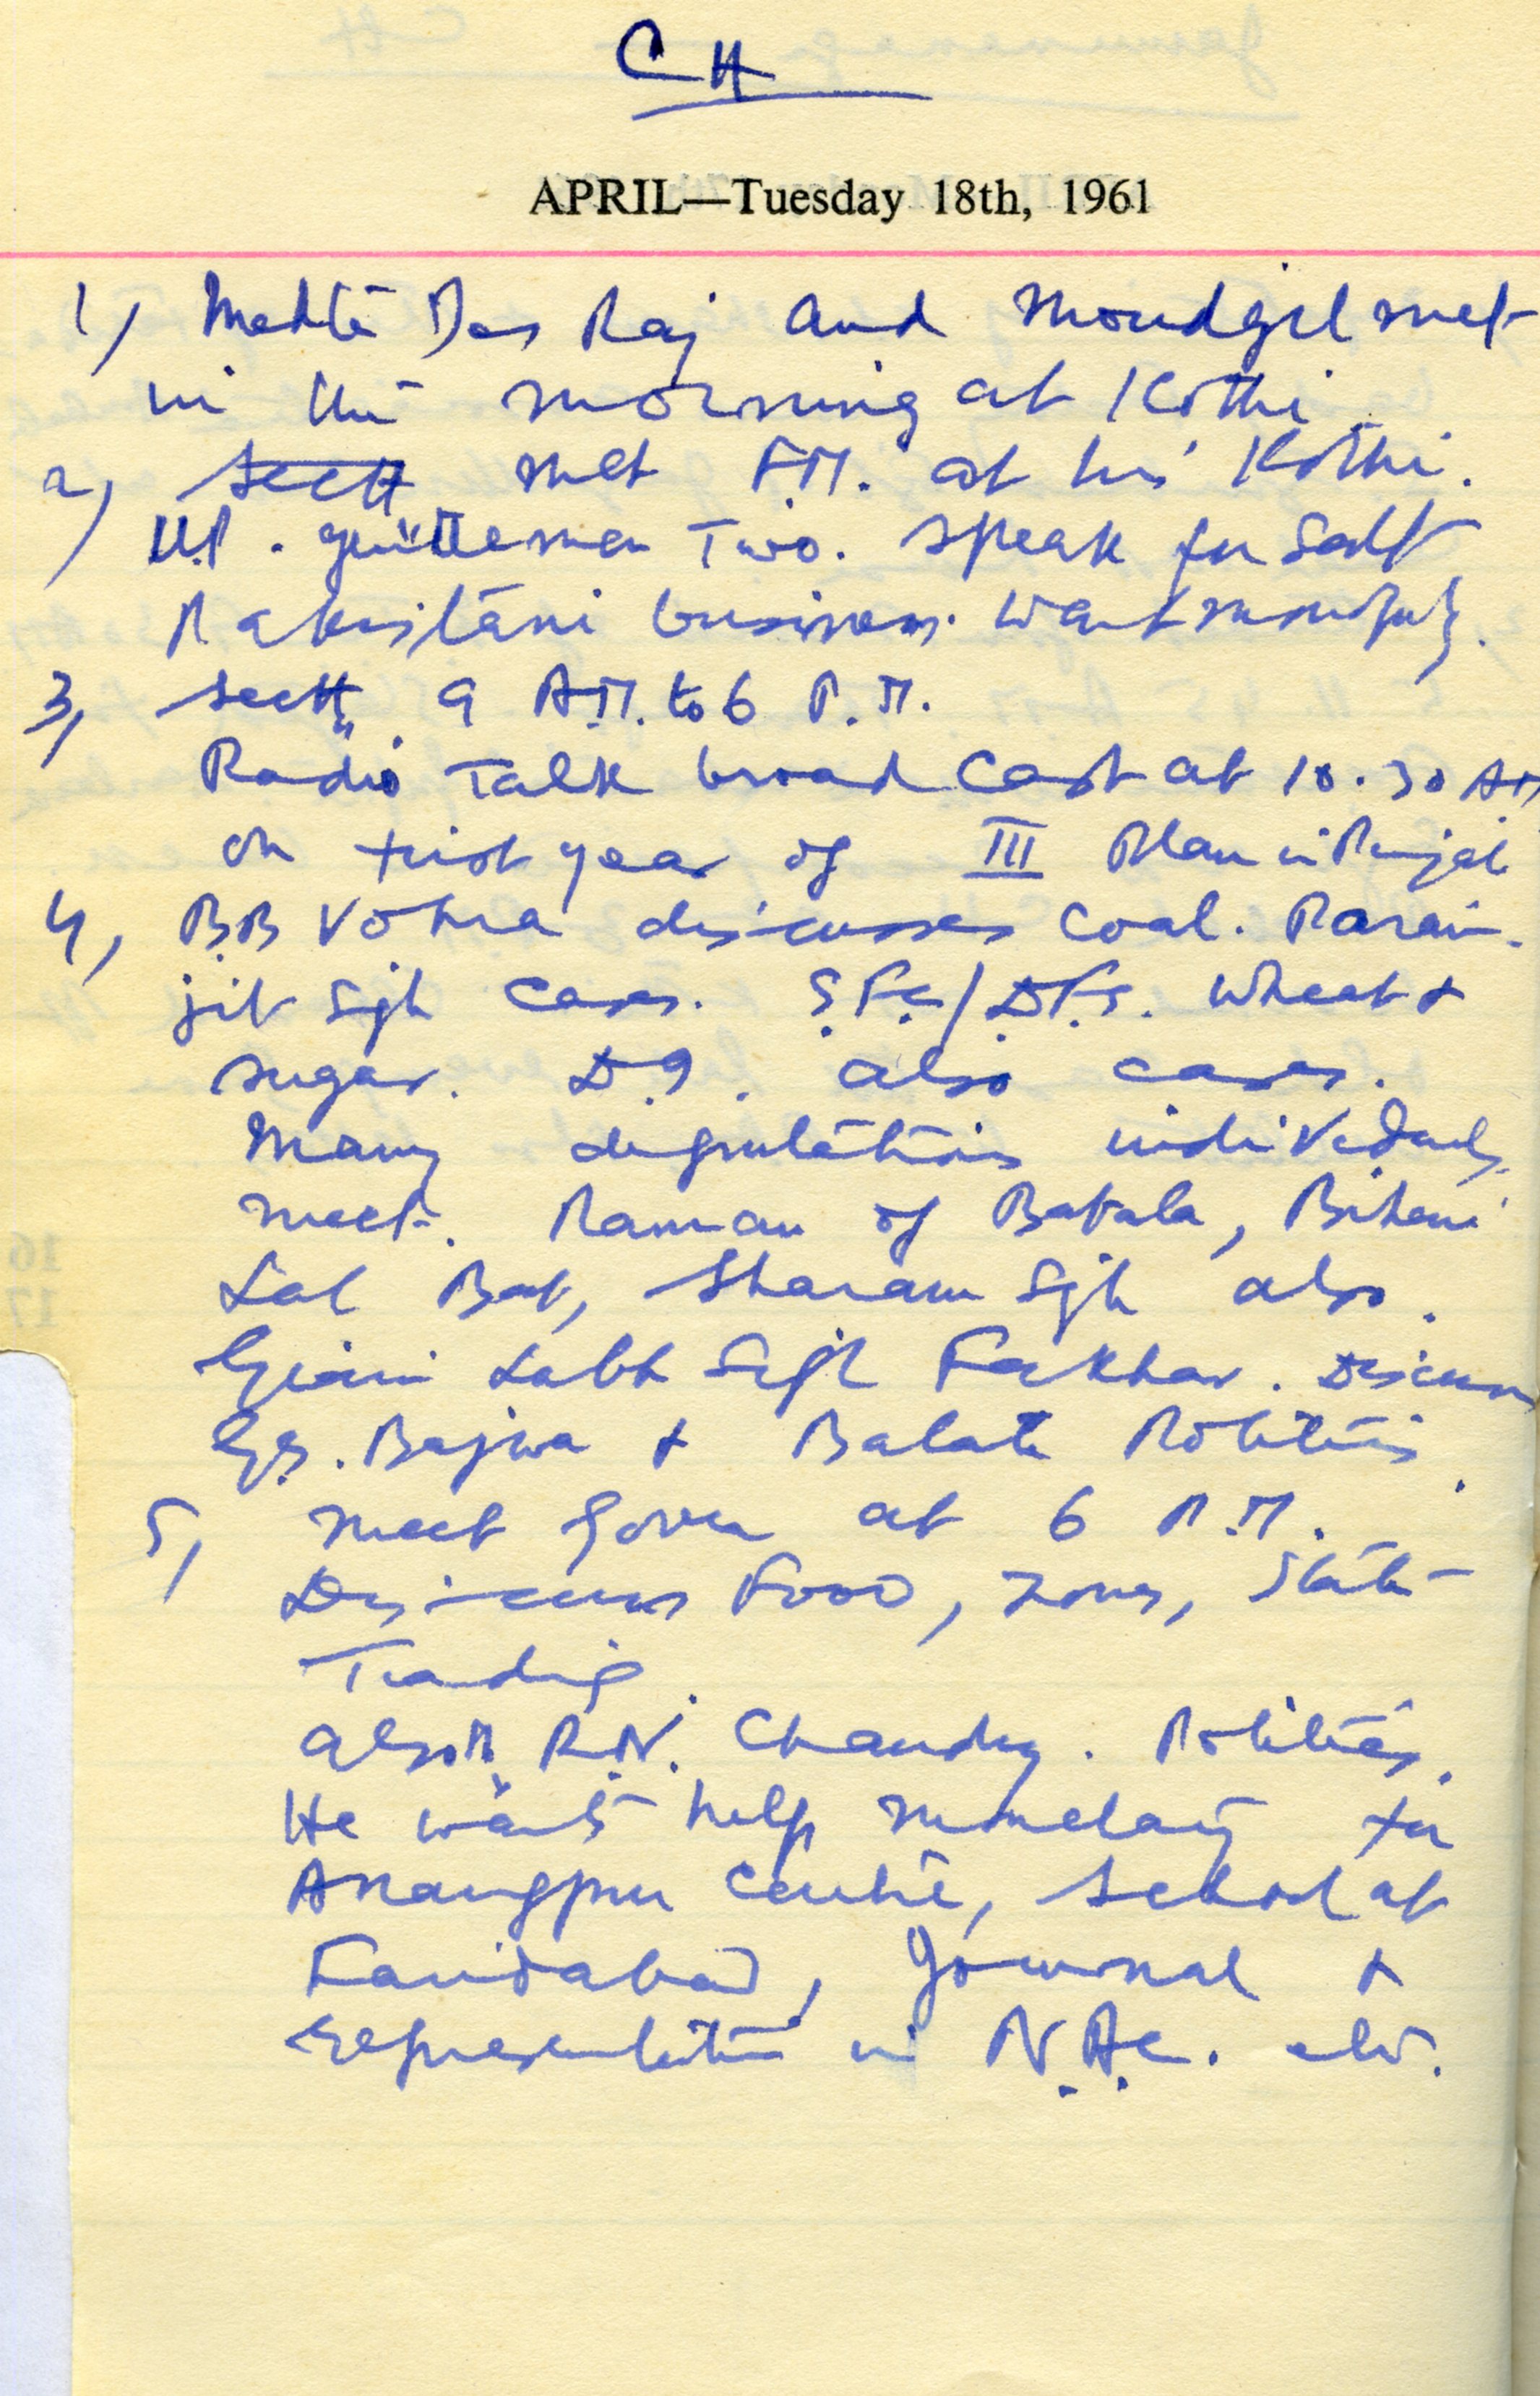 CH
APRIL—Tuesday 18th, 1961
1) Mehta Des Raj and Moudgil met
in the morning at Kothi
2) Sectt met F.M. at his Kothi.
U.P. gentlemen Two. speak for Salt
Pakistani business. Want monopoly.
3, Sectt. 9 A.M. to 6 P.M.
Radio Talk broad cast at 10.30 AM
on first year of III Plan in Punjab
4, BB Vohra discusses Coal. Param-
jit Sgh cases. S.Fs/D.F.S. Wheat &
sugar. D.9. also cases.
Many deputations individuals
meet. Raman of Batala, Bihari
Lal Bat, Sharam Sgh also.
Giani Labh Sgh Fakhar. Discuss
GS. Bajwa & Batala Politics.
5, Meet Gover at 6 P.M.
Discuss Food, Zones, State
Trading.
also R.N. Chaudry. Politics.
He wants help monetary for
Anangpur Centre, School at
Faridabad, Journal &
representation in N.Ac. etc.